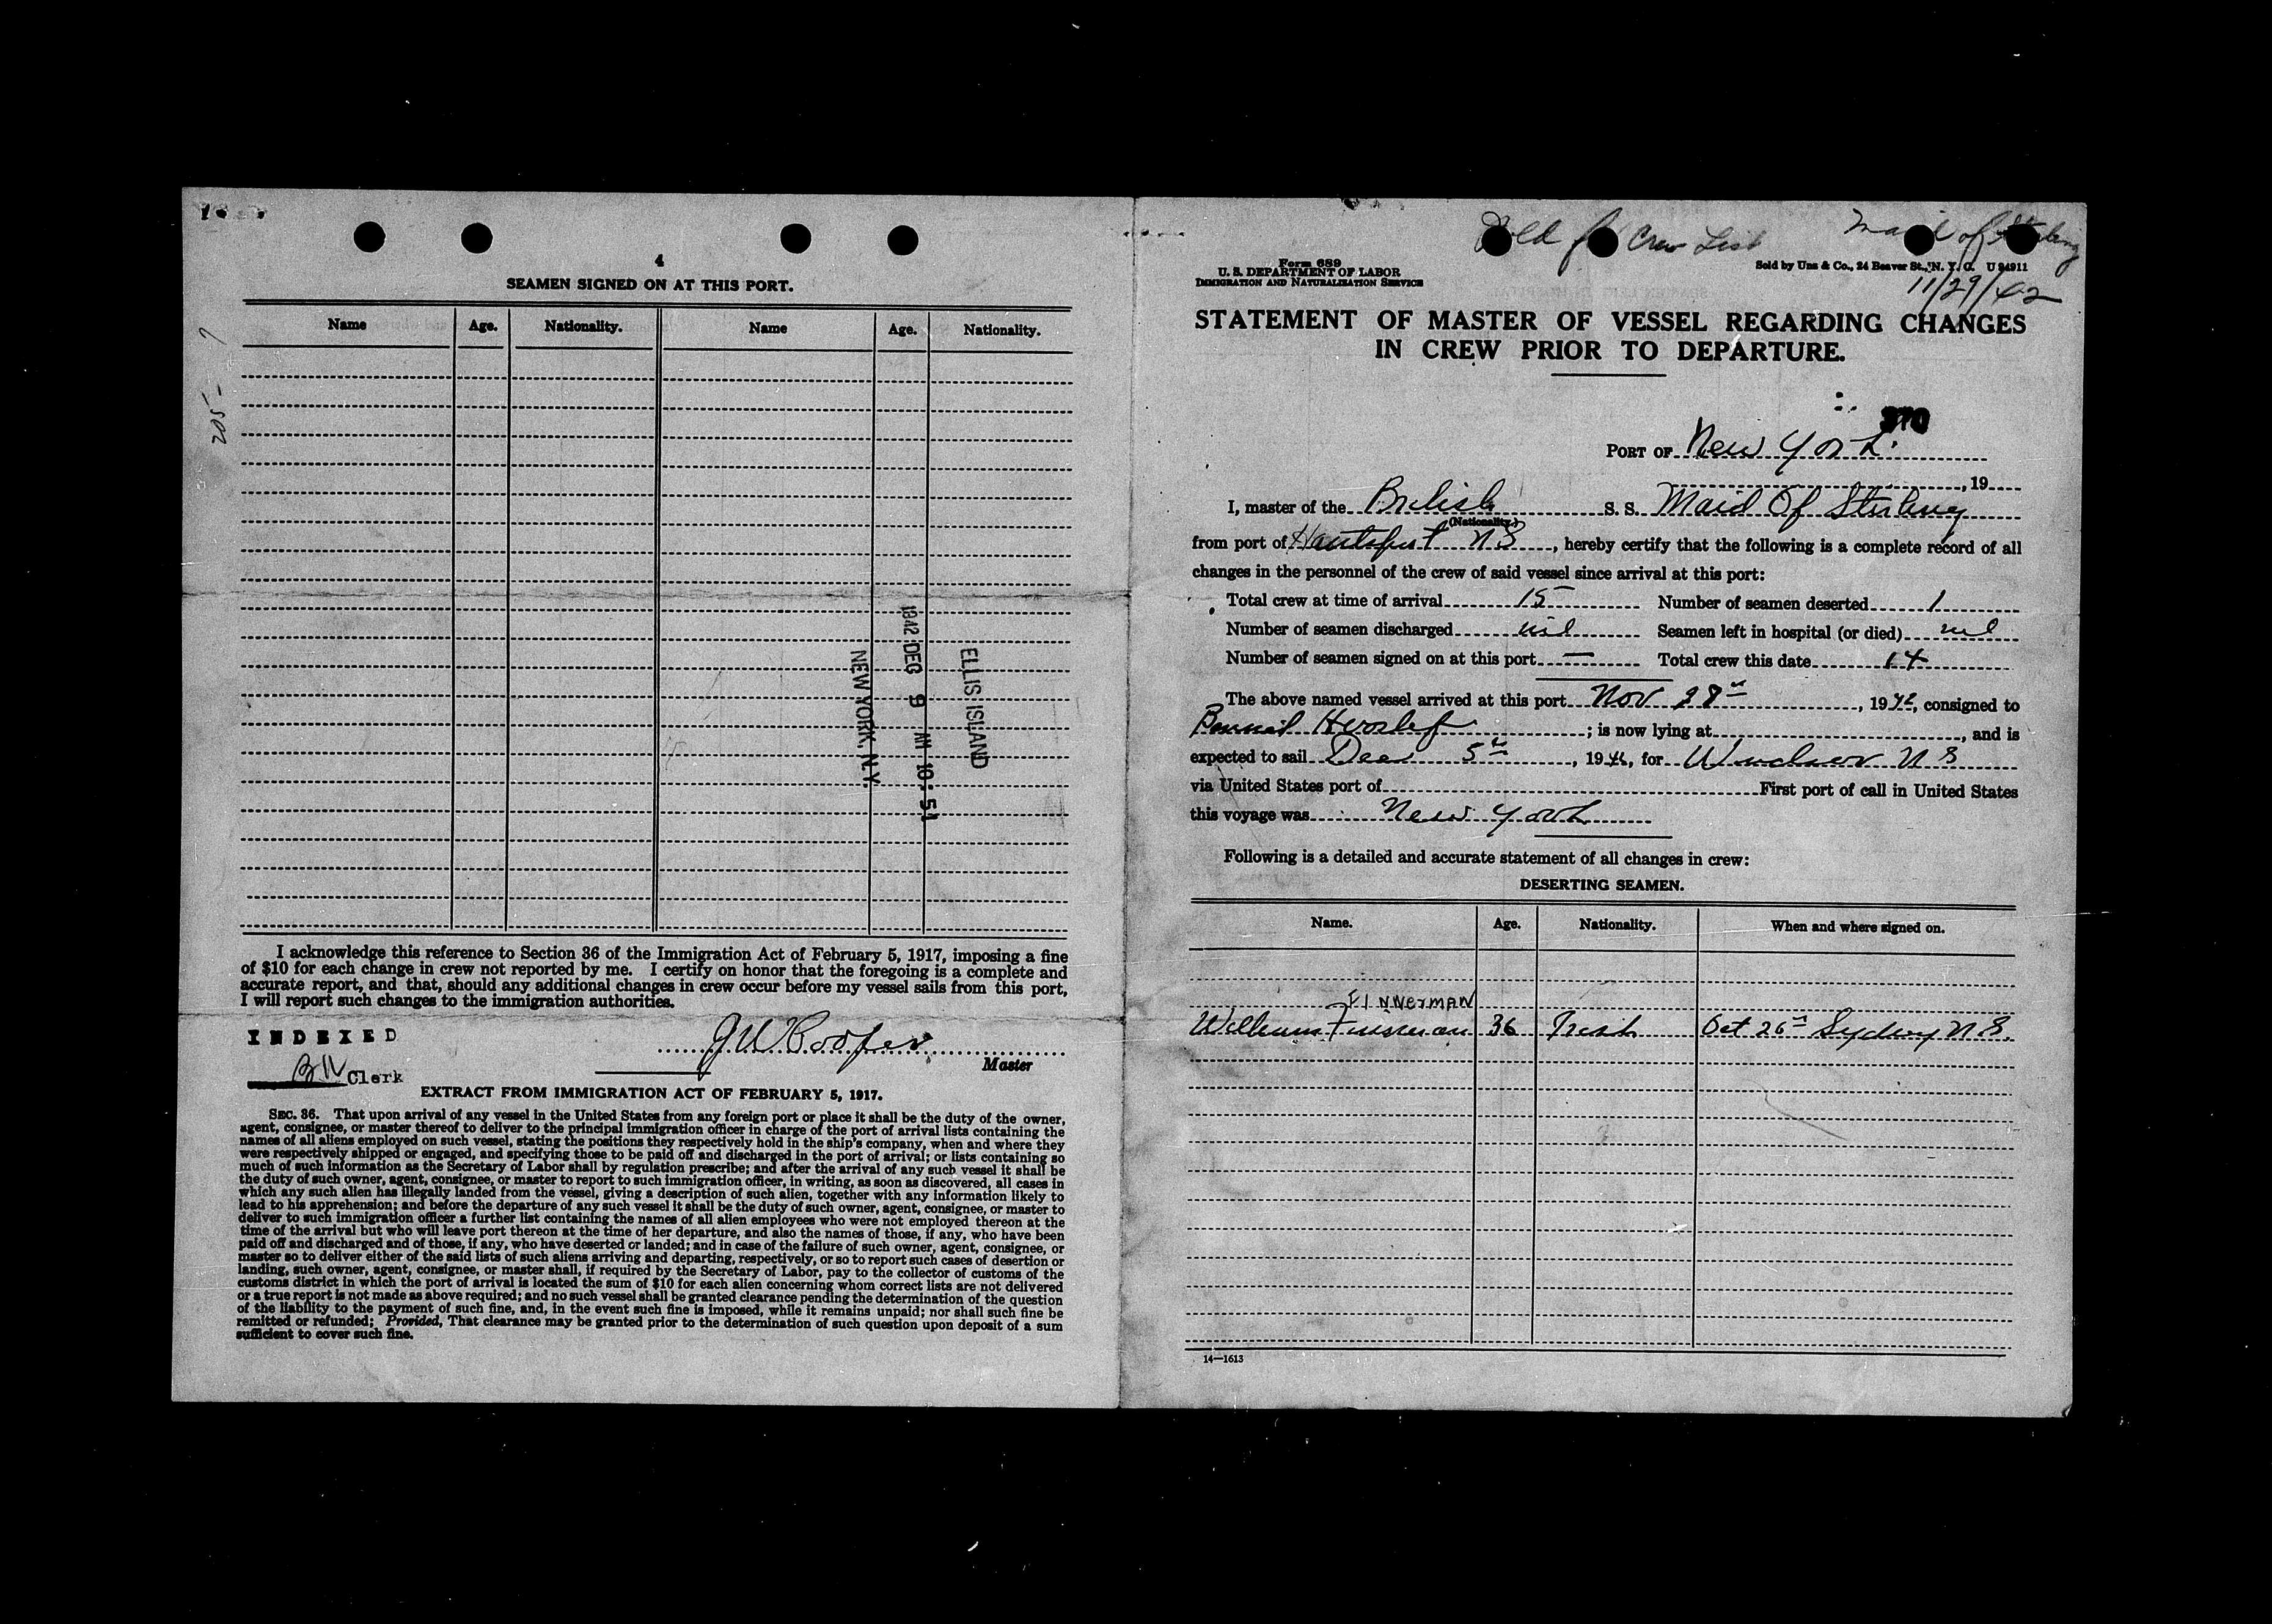 4
SEAMEN SIGNED ON AT THIS PORT.
Name Age. Nationality. Name Age. Nationality.
205-
ELLIS ISLAND
1942 DEC 9 AM 10:51
NEW YORK, N.Y.
I acknowledge this reference to Section 36 of the Immigration Act of February 5, 1917, imposing a fine
of $10 for each change in crew not reported by me. I certify on honor that the foregoing is a complete and
accurate report, and that, should any additional changes in crew occur before my vessel sails from this port,
I will report such changes to the immigration authorities.
INDEXED
Clerk
Master
EXTRACT FROM IMMIGRATION ACT OF FEBRUARY 5, 1917.
SEC. 36. That upon arrival of any vessel in the United States from any foreign port or place it shall be the duty of the owner,
agent, consignee, or master thereof to deliver to the principal immigration officer in charge of the port of arrival lists containing the
names of all aliens employed on such vessel, stating the positions they respectively hold in the ship's company, when and where they
were respectively shipped or engaged, and specifying those to be paid off and discharged in the port of arrival; or lists containing so
much of such information as the Secretary of Labor shall by regulation prescribe; and after the arrival of any such vessel it shall be
the duty of such owner, agent, consignee, or master to report to such immigration officer, in writing, as soon as discovered, all cases in
which any such alien has illegally landed from the vessel, giving a description of such alien, together with any information likely to
lead to his apprehension; and before the departure of any such vessel it shall be the duty of such owner, agent, consignee, or master to
deliver to such immigration officer a further list containing the names of all alien employees who were not employed thereon at the
time of the arrival but who will leave port thereon at the time of her departure, and also the names of those, if any, who have been
paid off and discharged and of those, if any, who have deserted or landed; and in case of the failure of such owner, agent, consignee, or
master so to deliver either of the said lists of such aliens arriving and departing, respectively, or so to report such cases of desertion or
landing, such owner, agent, consignee, or master shall, if required by the Secretary of Labor, pay to the collector of customs of the
customs district in which the port of arrival is located the sum of $10 for each alien concerning whom correct lists are not delivered
or a true report is not made as above required; and no such vessel shall be granted clearance pending the determination of the question
of the liability to the payment of such fine, and, in the event such fine is imposed, while it remains unpaid; nor shall such fine be
remitted or refunded; Provided, That clearance may be granted prior to the determination of such question upon deposit of a sum
sufficient to cover such fine.
Crew List Maid of Sterling
Form 689
U. S. DEPARTMENT OF LABOR
IMMIGRATION AND NATURALIZATION SERVICE
Sold by Unz & Co., 24 Beaver St., N. Y. C. U 94911
11/29/42
STATEMENT OF MASTER OF VESSEL REGARDING CHANGES
IN CREW PRIOR TO DEPARTURE.
370
PORT OF New York.
, 19
I, master of the British S. S. Maid Of Sterling
(Nationality)
from port of Hantsport NS, hereby certify that the following is a complete record of all
changes in the personnel of the crew of said vessel since arrival at this port:
Total crew at time of arrival 15 Number of seamen deserted 1
Number of seamen discharged nil Seamen left in hospital (or died) nil
Number of seamen signed on at this port — Total crew this date 14
The above named vessel arrived at this port Nov 28th, 1942, consigned to
; is now lying at , and is
expected to sail Dec 5th, 1942, for Windsor NS
via United States port of First port of call in United States
this voyage was New York
Following is a detailed and accurate statement of all changes in crew:
DESERTING SEAMEN.
Name. Age. Nationality. When and where signed on.
FINNERMAN
William Finnerman 36 Irish Oct 26th Sydney N.S.
14—1613